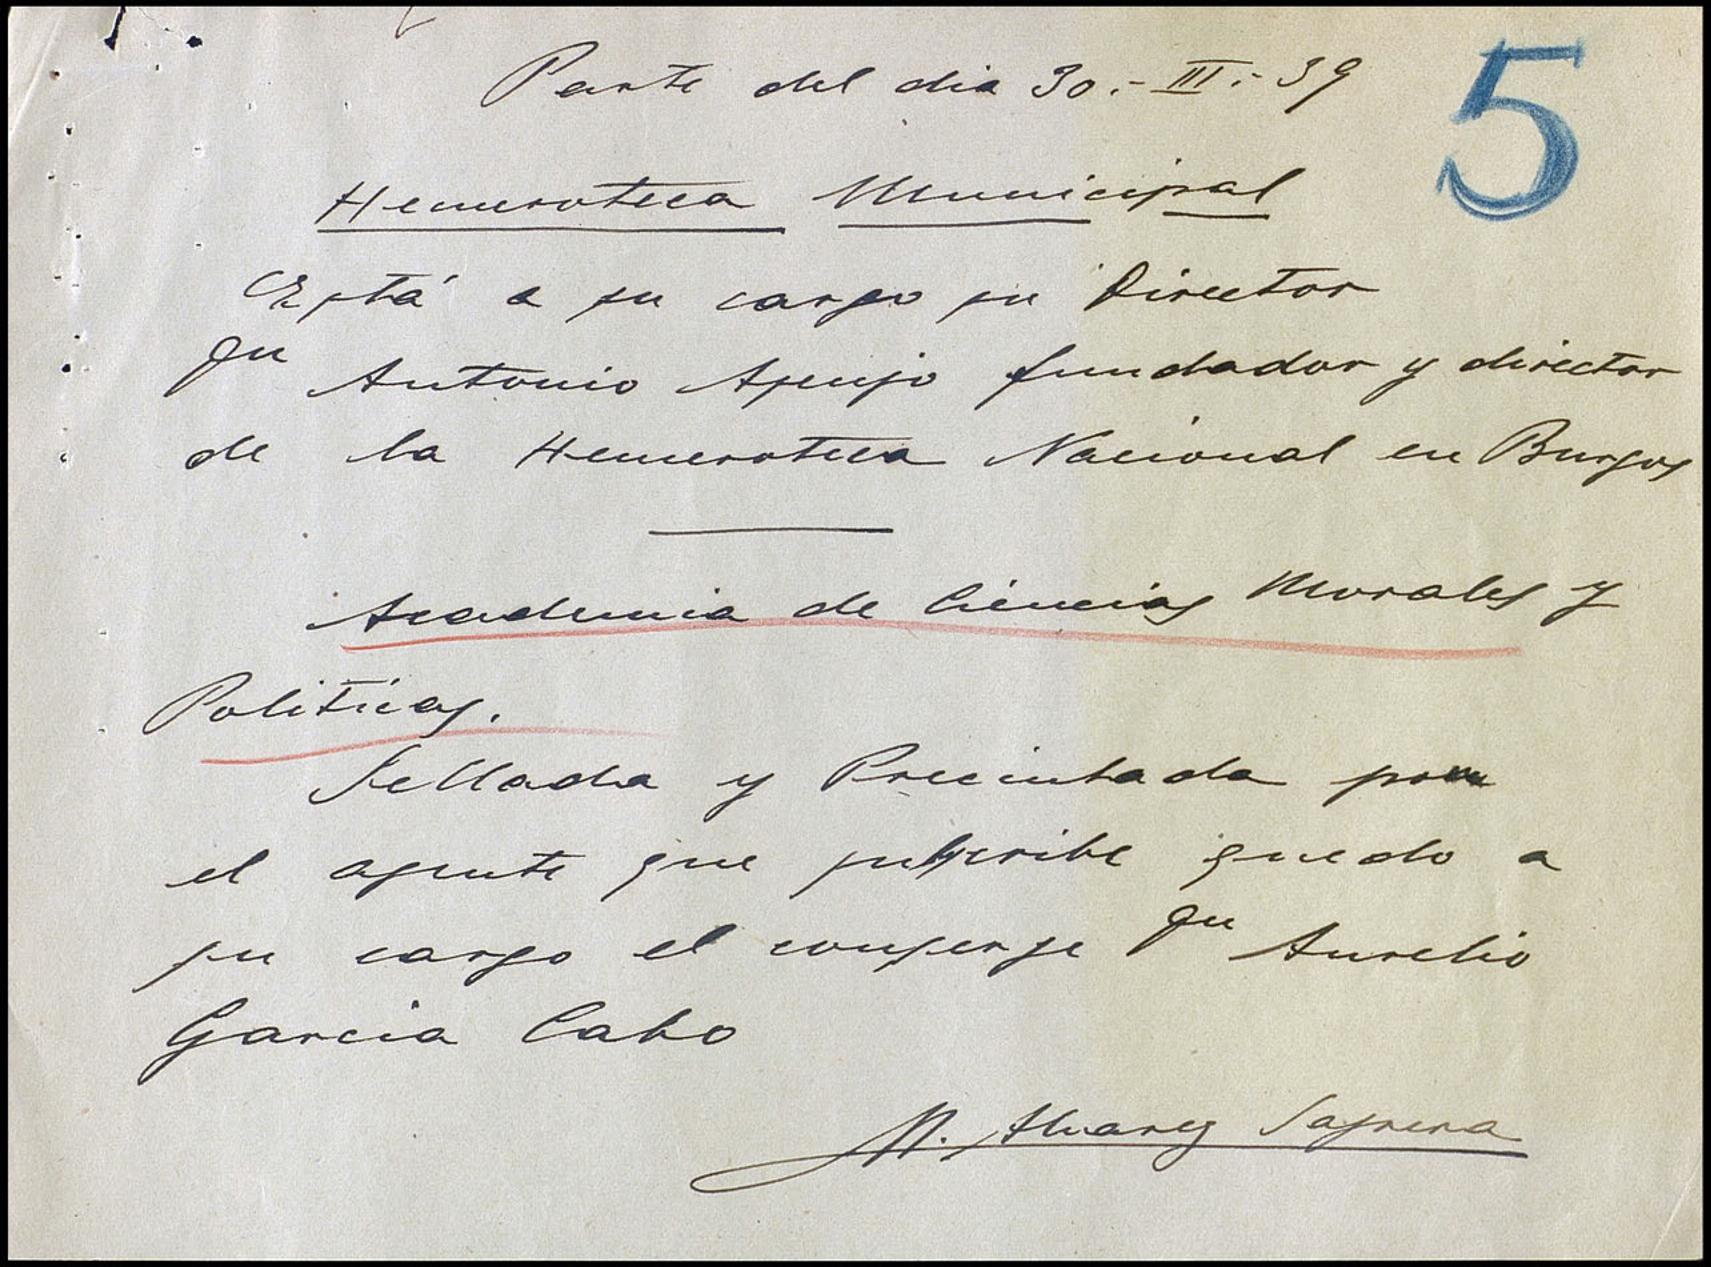 Parte del dia 30.-III.-39
5
Hemeroteca Municipal
Está a su cargo su Director
Dn Antonio Asenjo fundador y director
de la Hemeroteca Nacional en Burgos
Academia de Ciencias Morales y
Politicas.
Sellada y Precintada por
el agente que subscribe quedo a
su cargo el conserje Dn Aurelio
Garcia Cabo
M. Alvarez